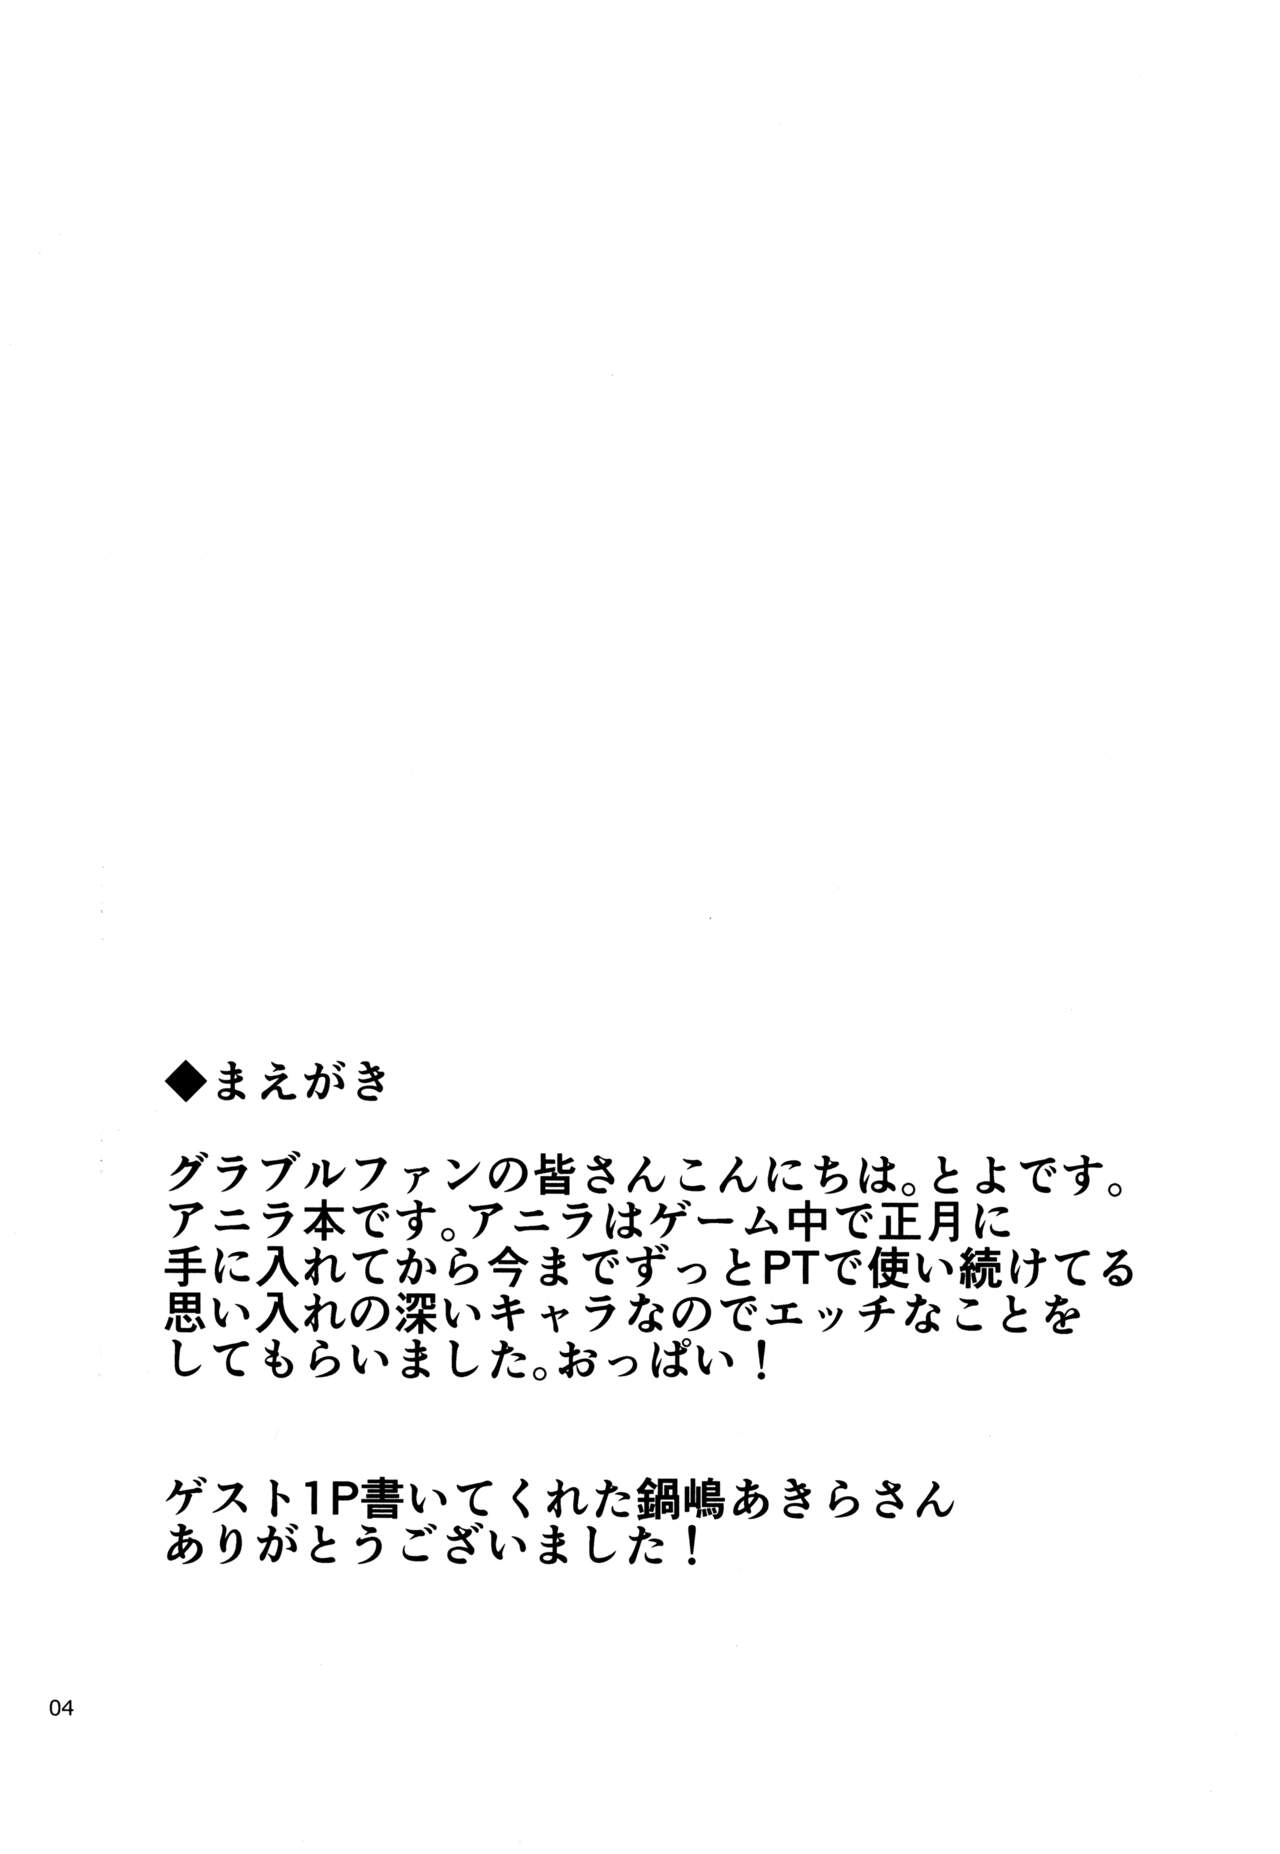 ◆まえがき
グラブルファンの皆さんこんにちは。とよです。
アニラ本です。アニラはゲーム中で正月に
手に入れてから今までずっとPTで使い続けてる
思い入れの深いキャラなのでエッチなことを
してもらいました。おっぱい！
ゲスト1P書いてくれた鍋嶋あきらさん
ありがとうございました！
04